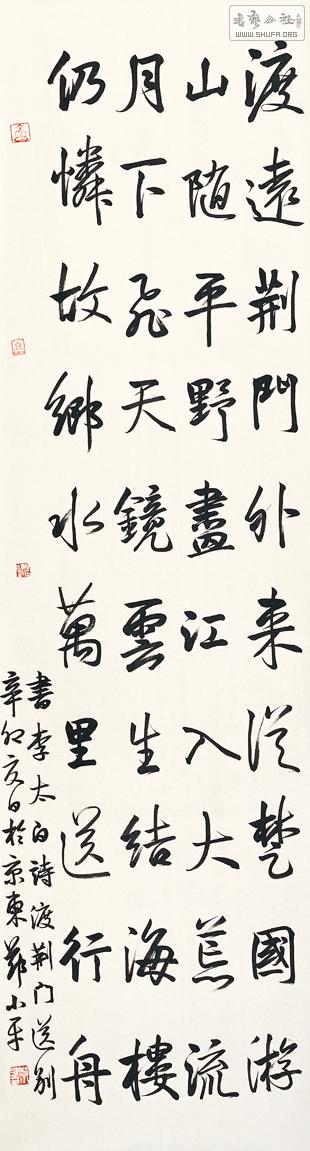 書藝公社
WWW.SHUFA.ORG
渡遠荊門外来從楚國游
山随平野盡江入大荒流
月下飛天鏡雲生結海樓
仍憐故鄉水萬里送行舟
書李太白詩渡荊门送别
辛卯夏日於京東鄭小平